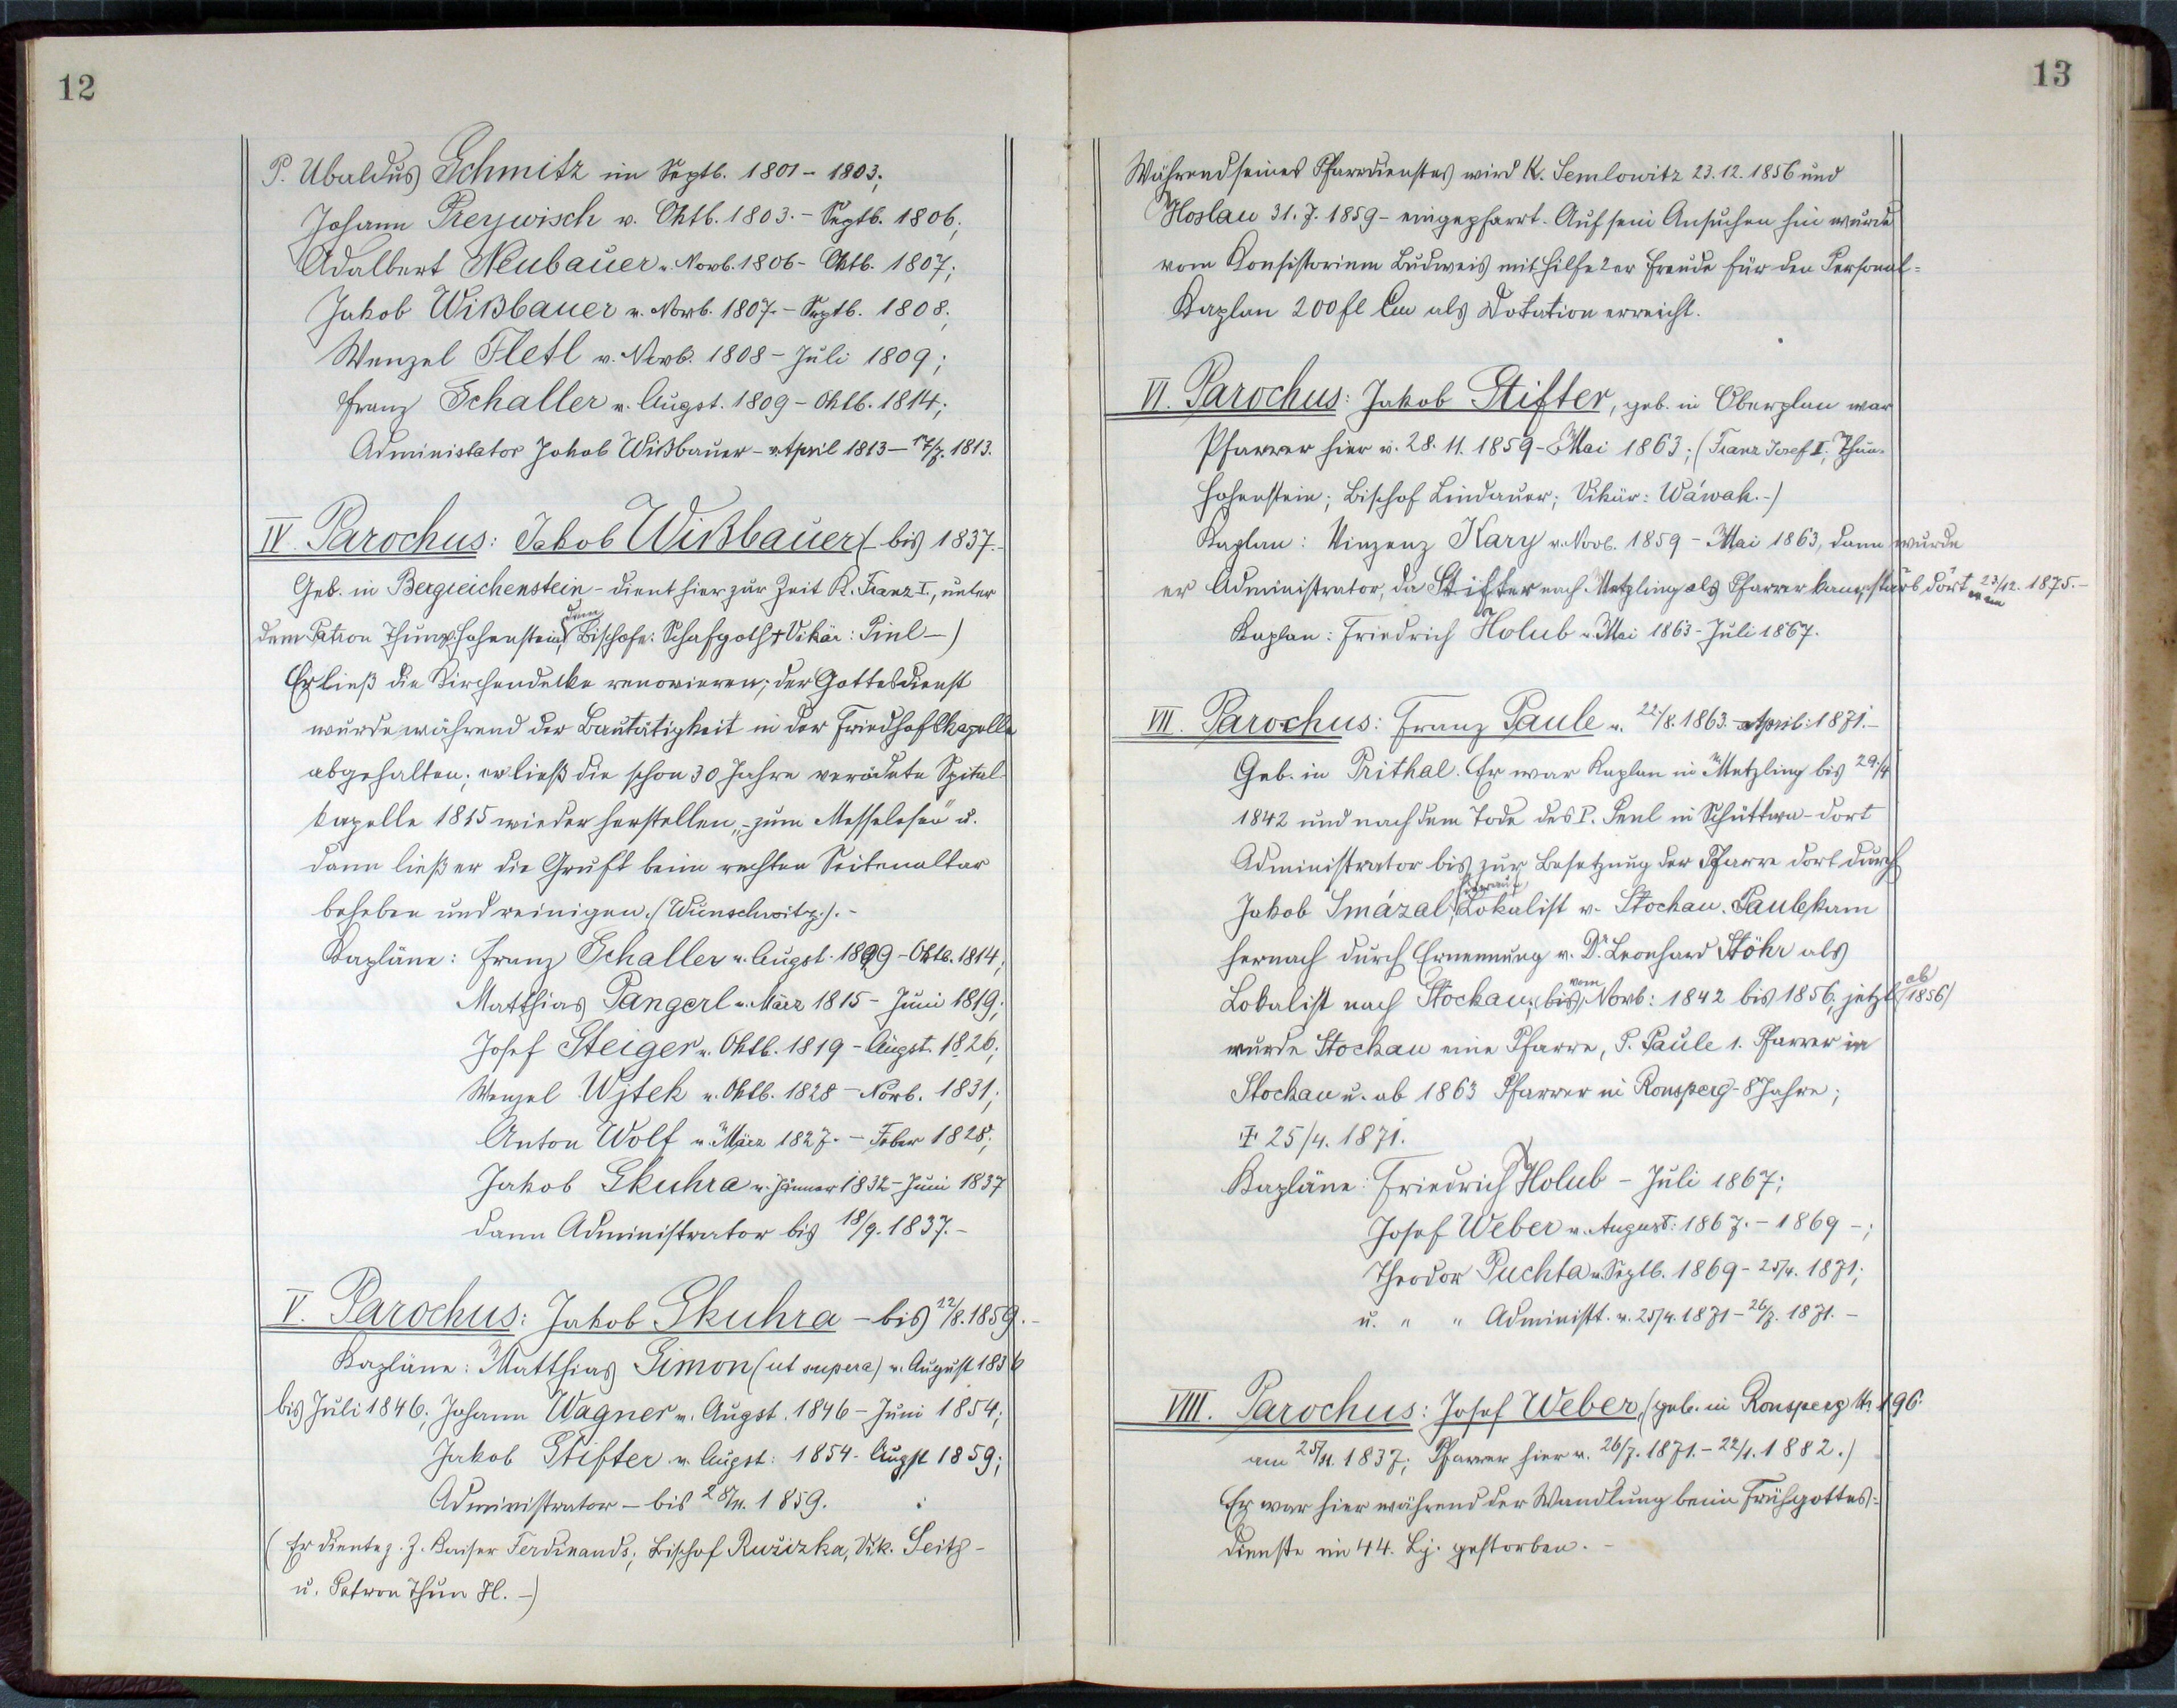 12
P. Ubaldus Schmitz im Septb. 1801 - 1803;
Johann Preywisch v. Oktb. 1803. - Septb. 1806;
Adalbert Neubauer v. Novb. 1806 - Oktb. 1807;
Jakob Wißbauer v. Novb. 1807. - Septb. 1808;
Wenzel Fletl v. Novb. 1808 - Juli 1809;
Franz Schaller v. Augst. 1809 - Oktb. 1814;
Administator Jakob Wißbauer - v. April 1813 - 17/7. 1813.
IV. Parochus: Jakob Wißbauer (- bis 1837.-
Geb. in Bergreichenstein - dient hier zur Zeit K. Franz I., unter
dem Patron Thun Hohenstein, dem Bischofe: Schafgoth + Vikär: Pinl -)
Er ließ die Kirchendecke renovieren; der Gottesdienst
wurde während der Bautätigkeit in der Friedhofskapelle
abgehalten; er ließ die schon 30 Jahre verödete Spital-
kapelle 1815 wieder herstellen, "zum Messelesen" u.
dann ließ er die Gruft beim rechten Seitenaltar
beheben und reinigen. (Wunschwitz.). -
Kapläne: Franz Schaller v. Augst. 1809 - Oktb. 1814;
Matthias Pangerl v. März 1815 - Juni 1819;
Josef Steiger v. Oktb. 1819 - Augst. 1826;
Wenzel Wjtek v. Oktb. 1828 - Novb. 1831;
Anton Wolf v. März 1827. - Feber 1828;
Jakob Skuhra v. Jänner 1832 - Juni 1837
dann Administrator bis 18/9. 1837. -
V. Parochus: Jakob Skuhra - bis 22/8. 1859. -
Kapläne: Matthias Simon (ut supera) v. August 1836
bis Juli 1846; Johann Wagner v. Augst. 1846 - Juni 1854;
Jakob Stifter v. Augst: 1854 - Augst 1859;
Administrator - bis 28/11. 1859.
(Er diente z. Z. Kaiser Ferdinands; Bischof Ružizka, Vik. Seitz -
u. Patron Thun H. -)
13
Während seines Pfarrdienstes wird K. Semlowitz 23. 12. 1856 und
Hoslau 31. 7. 1859 - eingepfarrt. Auf sein Ansuchen hin wurde
vom Konsistorium Budweis mit Hilfe 2er Freude für den Personal-
Kaplan 200 fl Cm als Dotation erreicht.
VI. Parochus: Jakob Stifter, geb. in Oberplan war
Pfarrer hier v. 28. 11. 1859 - Mai 1863; (Franz Josef I; Thun-
Hohenstein; Bischof Lindauer; Vikär: Wáwak. -)
Kaplan: Vinzenz Kary v. Novb. 1859 - Mai 1863, dann wurde
er Administrator, da Stifter nach Metzling als Pfarrer kam, starb dort am 23/12. 1875. -
Kaplan: Friedrich Holub v. Mai 1863 - Juli 1867.
VII. Parochus: Franz Paule v. 22/8. 1863. - April: 1871. -
Geb. in Prithal. Er war Kaplan in Metzling bis 29/4
1842 und nach dem Tode des P. Penl in Schüttwa - dort
Administrator bis zur Besetzung der Pfarre dort durch
Jakob Smázal, Lokalist v. Stockau. Paule kam
hernach durch Ernennung v. Dr. Leonhard Stöhr als
Lokalist nach Stockau, bis vom Novb: 1842 bis 1856, jetzt (ab 1856)
wurde Stockau eine Pfarre, P. Paule 1. Pfarrer in
Stockau u. ab 1863 Pfarrer in Ronsperg - 8 Jahre;
† 25/4. 1871.
Kapläne: Friedrich Holub - Juli 1867;
Josef Weber v. August: 1867. - 1869 -;
Theodor Puchta v. Septb. 1869 - 25/4. 1871;
u. " " Administ. v. 25/4. 1871 - 26/7. 1871. -
VIII. Parochus: Josef Weber, (geb. in Ronsperg Nr. 196
am 25/11. 1837; Pfarrer hier v. 26/7. 1871. - 22/1. 1882.)
Er war hier während der Wandlung beim Frühgottes-
dienste im 44. Lj. gestorben. -